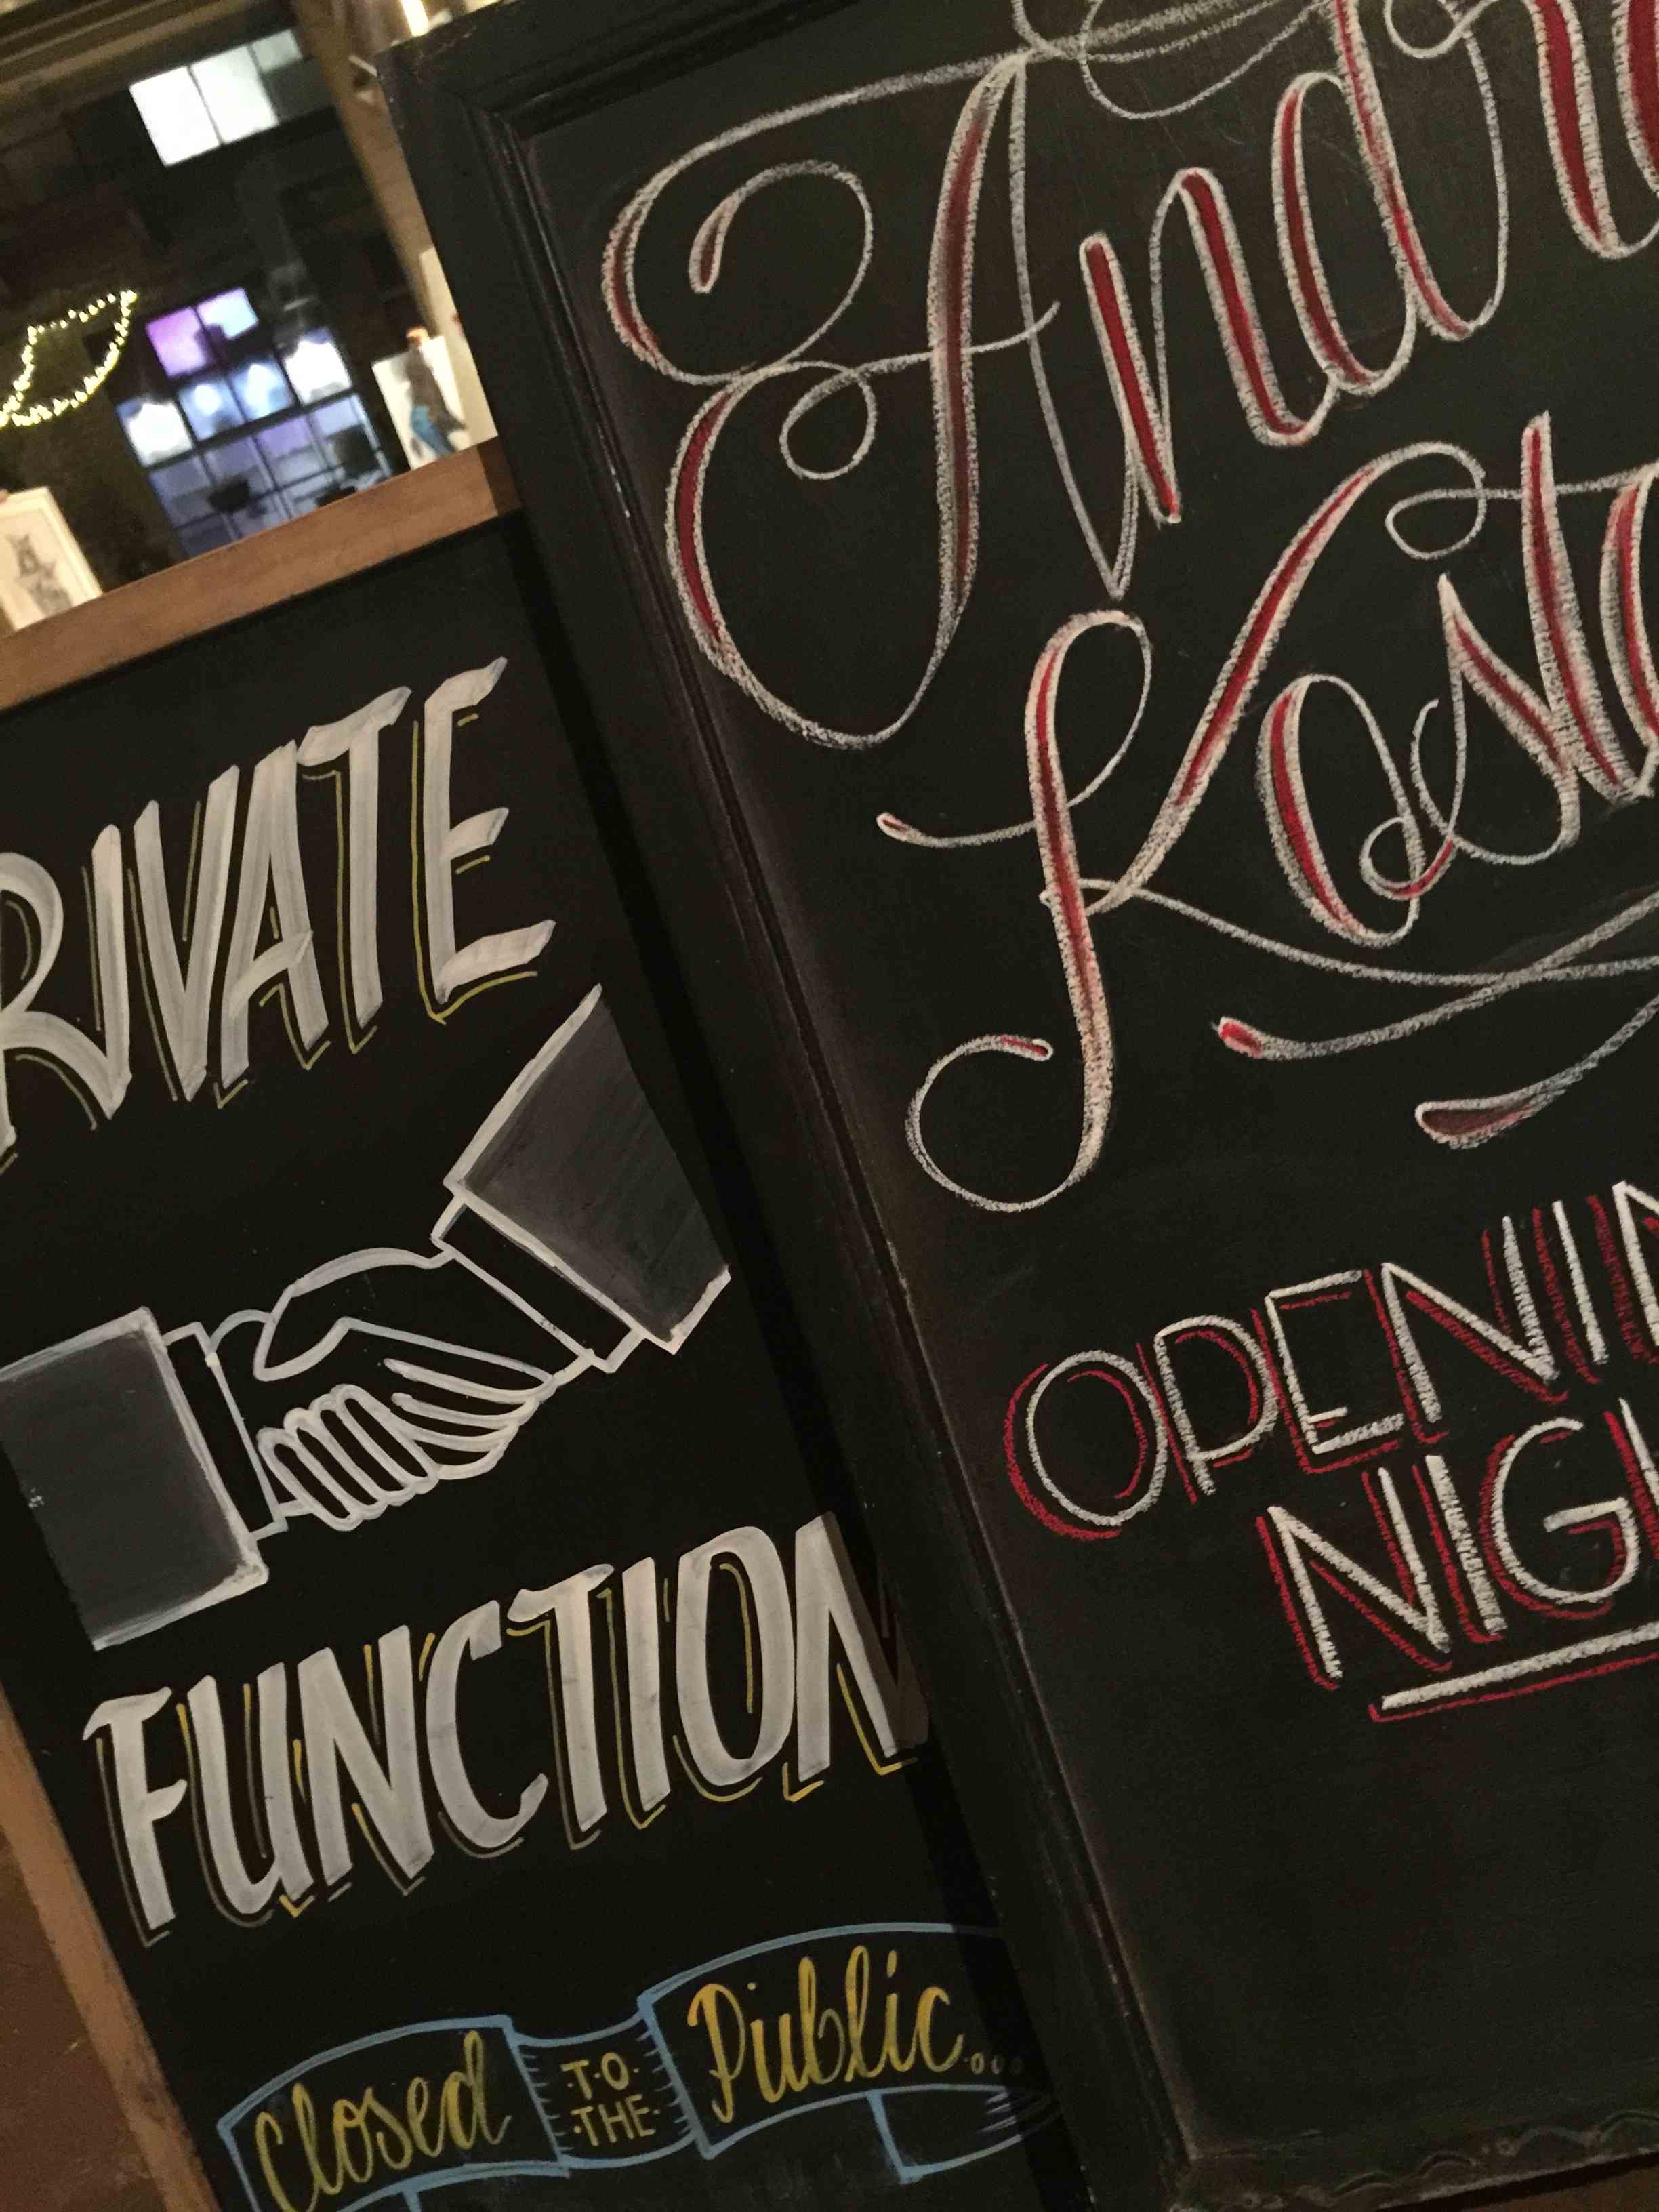 RIVATE
FUNCTION
Closed
·TO·
·THE·
Public...
Andr
Kost
OPENIN
NIGH